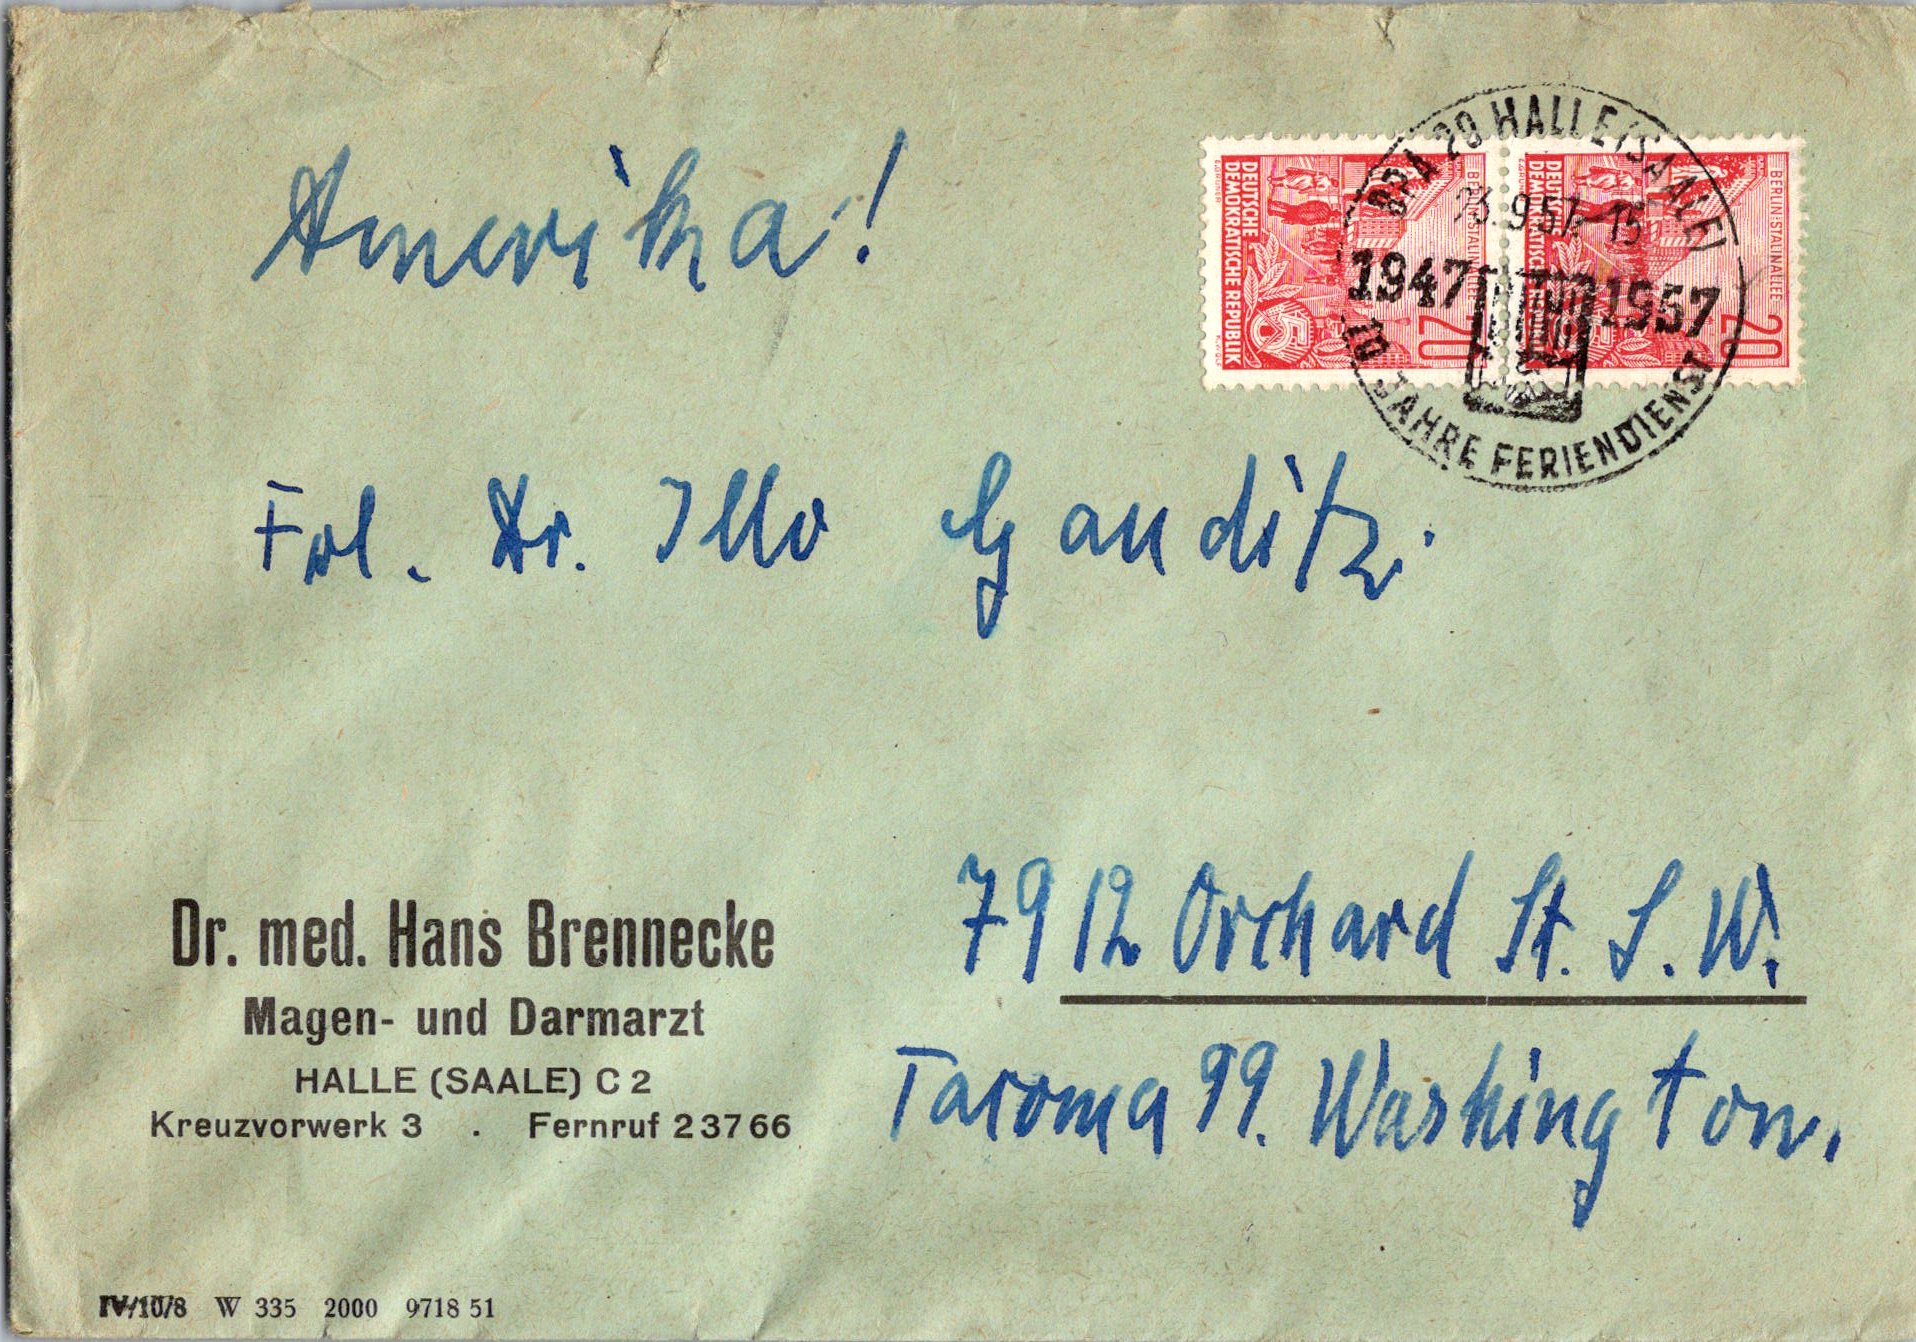 Amerika!
BPA 28 HALLE (SAALE)
9.57.-15
1947 1957
10 JAHRE FERIENDIENST
DEUTSCHE
DEMOKRATISCHE REPUBLIK
BERLIN-STALINALLEE
20
DEUTSCHE
DEMOKRATISCHE
BERLIN-STALINALLEE
20
Frl. Dr. Illo Gauditz.
7912 Orchard St. S. W.
Tacoma 99. Washington.
Dr. med. Hans Brennecke
Magen- und Darmarzt
HALLE (SAALE) C 2
Kreuzvorwerk 3 . Fernruf 23766
IV/10/8 W 335 2000 9718 51